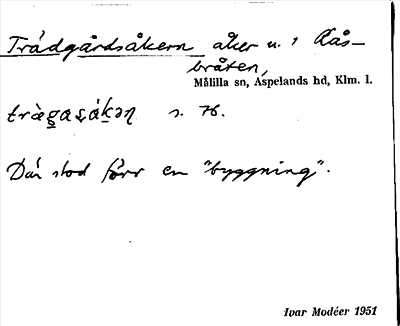 Trädgårdsåkern åker u. 1 Råsbråten,
Målilla sn, Aspelands hd, Klm. l.
trä̀gaṣåkəη s. H.
Där stod förr en "byggning".
Ivar Modéer 1951